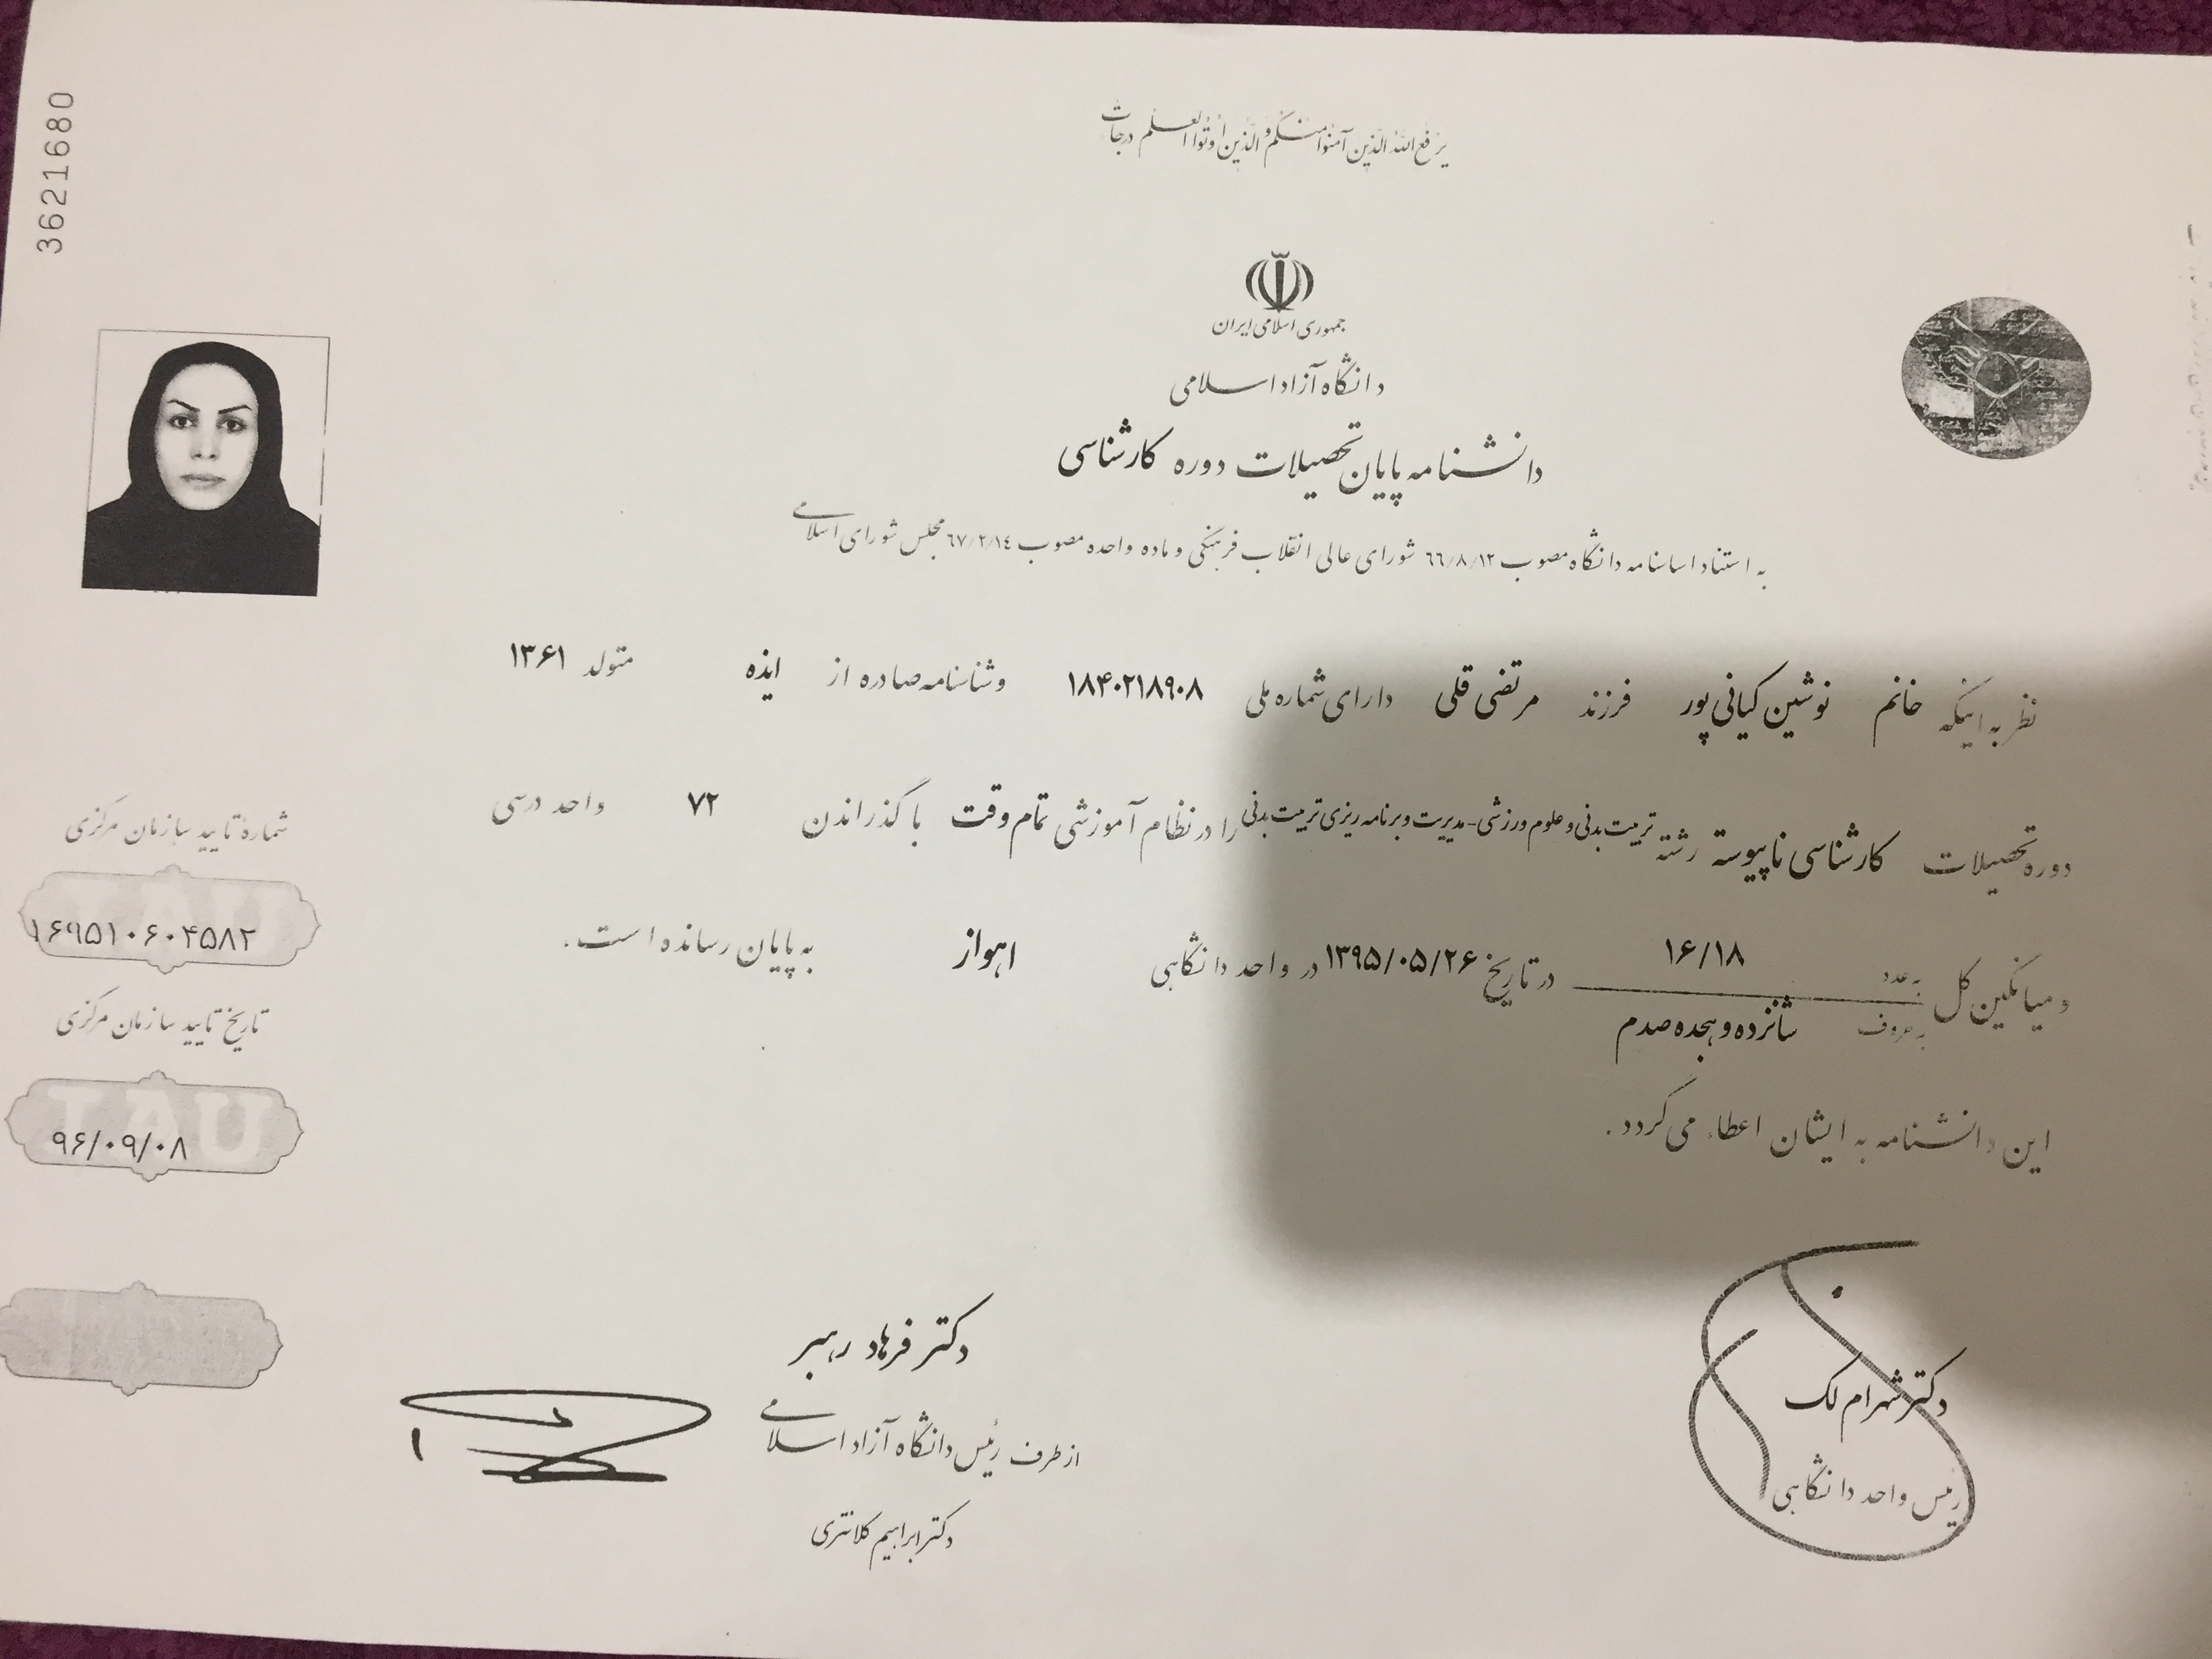 3621680
یرفع الله الذین آمنوا منکم و الذین اوتوا العلم درجات
جمهوری اسلامی ایران
دانشگاه آزاد اسلامی
دانشنامه پایان تحصیلات دوره کارشناسی
به استناد اساسنامه دانشگاه مصوب ۶۶/۸/۱۲ شورای عالی انقلاب فرهنگی و ماده واحده مصوب ۶۷/۲/۱۴ مجلس شورای اسلامی
نظر به اینکه خانم نوشین کیانی پور فرزند مرتضی قلی دارای شماره ملی ۱۸۴۰۲۱۸۹۰۸ و شناسنامه صادره از ایذه متولد ۱۳۶۱
دوره تحصیلات کارشناسی ناپیوسته رشته تربیت بدنی و علوم ورزشی-مدیریت و برنامه ریزی تربیت بدنی را در نظام آموزشی تمام وقت با گذراندن ۷۲ واحد درسی
و میانگین کل به عدد ۱۶/۱۸ به حروف شانزده و هجده صدم در تاریخ ۱۳۹۵/۰۵/۲۶ در واحد دانشگاهی اهواز به پایان رسانده است.
این دانشنامه به ایشان اعطاء می گردد.
شماره تایید سازمان مرکزی
IAU
۱۶۹۵۱۰۶۰۴۵۸۲
تاریخ تایید سازمان مرکزی
IAU
۹۶/۰۹/۰۸
دکتر شهرام لک
رئیس واحد دانشگاهی
دکتر فرهاد رهبر
از طرف رئیس دانشگاه آزاد اسلامی
دکتر ابراهیم کلانتری